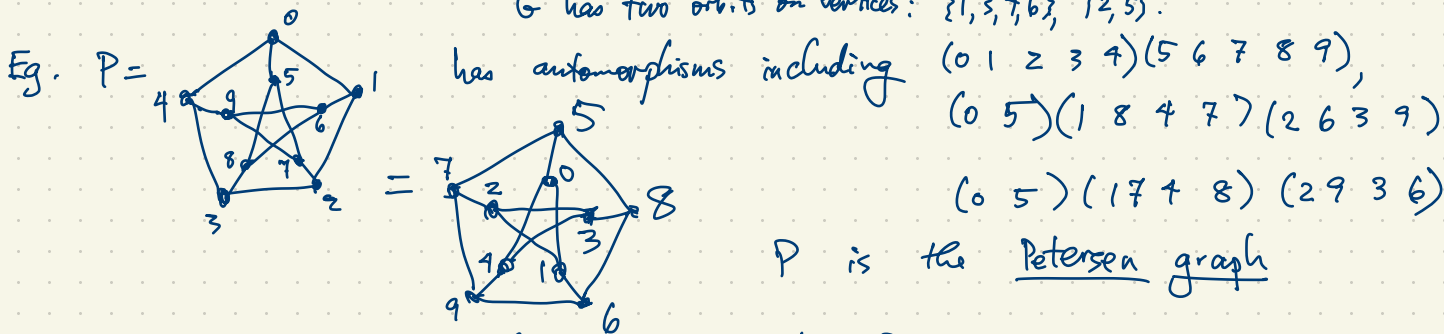 G has two orbits on vertices: {1,5,7,6}, {2,3}.
Eg. P=
0
5
1
4
9
6
8
7
3
2
has automorphisms including (0 1 2 3 4)(5 6 7 8 9),
(0 5)(1 8 4 7)(2 6 3 9)
=
5
7
2
0
8
3
4
1
9
6
(0 5)(1 7 4 8)(2 9 3 6)
P is the Petersen graph